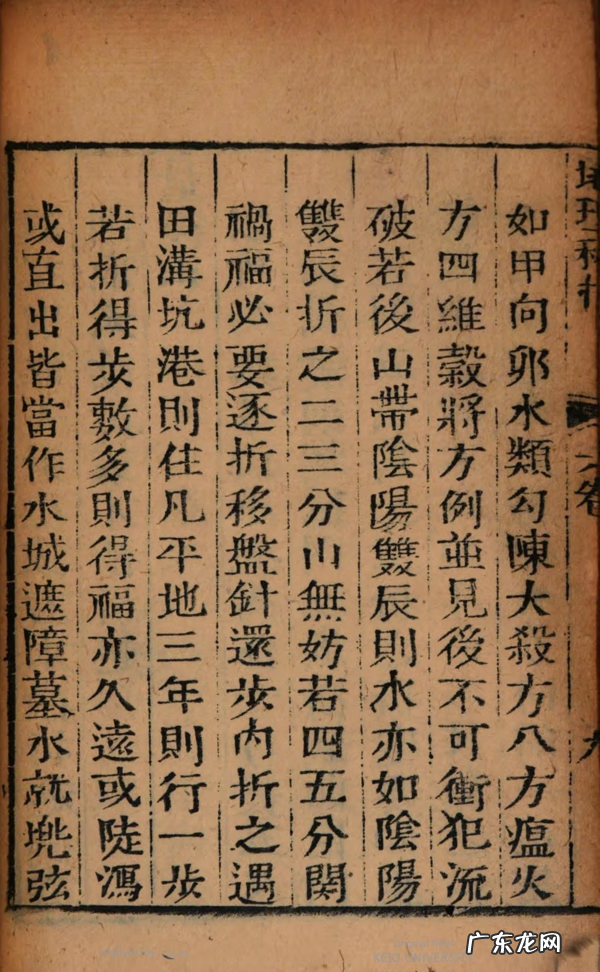 如甲向卯水類勾陳大殺方八方瘟火
方四維㲄將方例並見後不可衝犯流
破若後山帶陰陽雙辰則水亦如陰陽
雙辰折之二三分山無妨若四五分関
禍福必要逐折移盤針還步內折之遇
田溝坑港則住凡平地三年則行一步
若折得步數多則得福亦久遠或陡瀉
或直出皆當作水城遮障墓水就兠弦
六卷
九
广东龙网